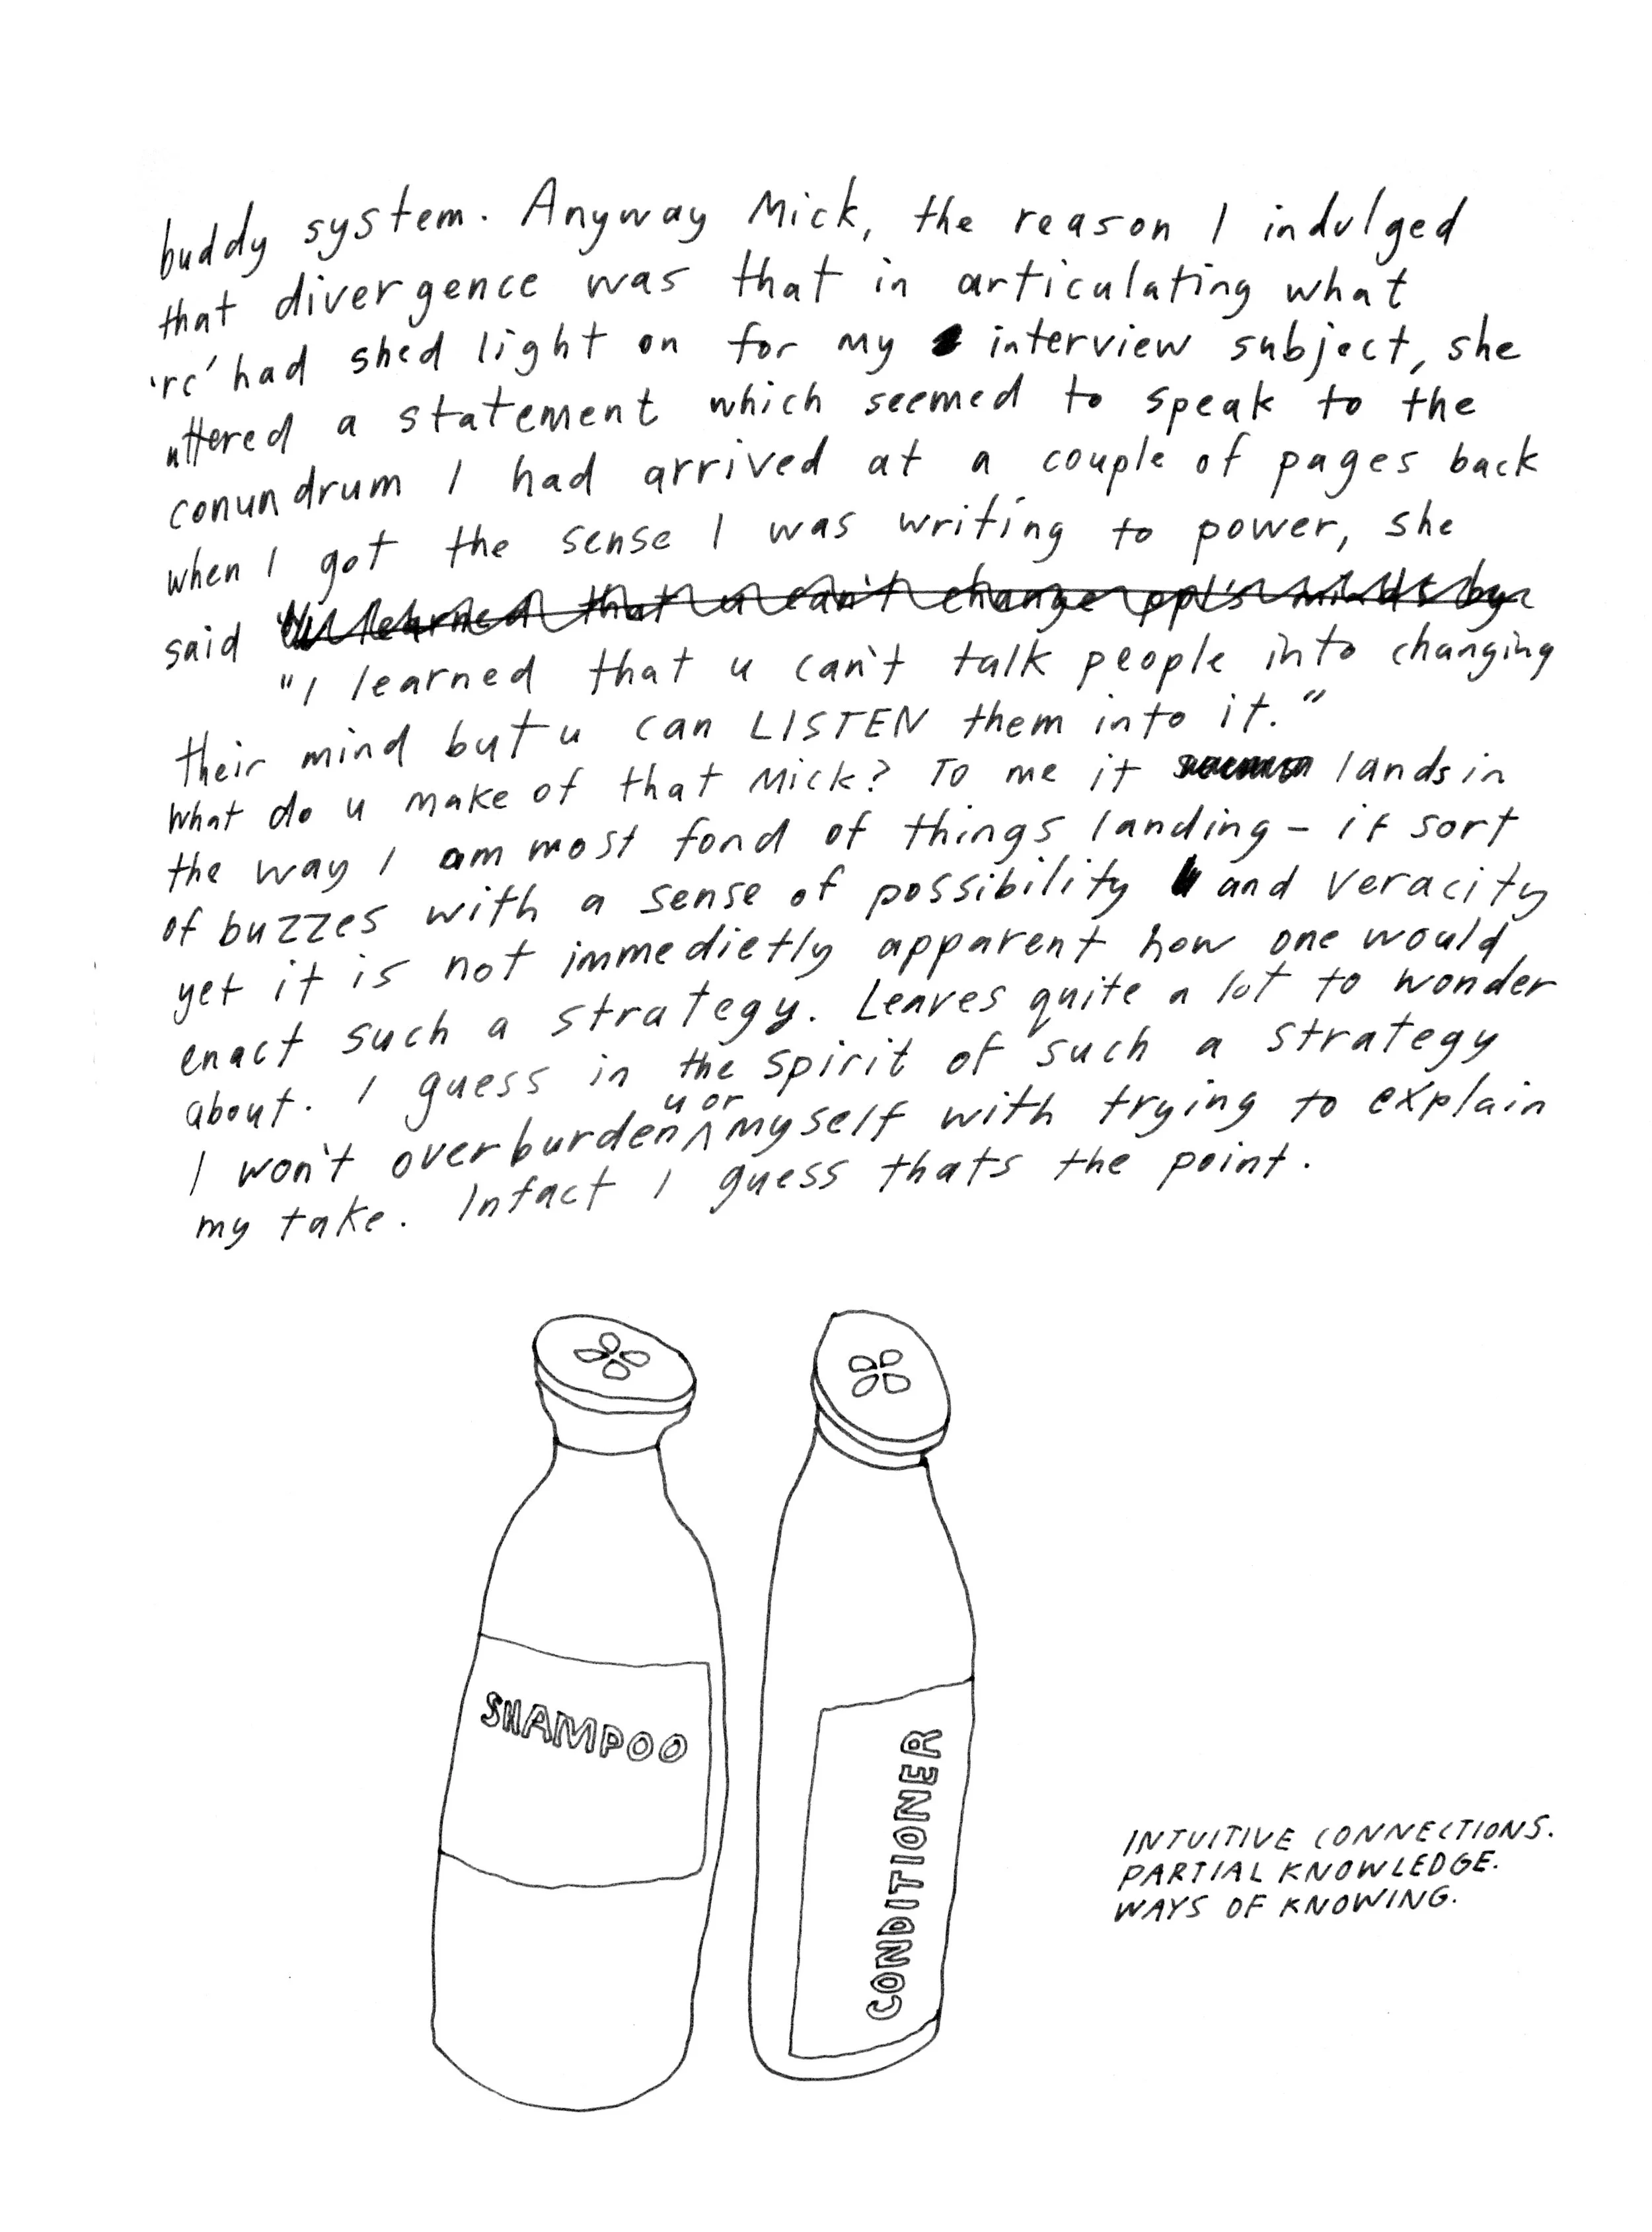 buddy system. Anyway Mick, the reason I indulged
that divergence was that in articulating what
'rc' had shed light on for my interview subject, she
uttered a statement which seemed to speak to the
conundrum I had arrived at a couple of pages back
when I got the sense I was writing to power, she
said learned that u can't change ppl's minds by
"I learned that u can't talk people into changing
their mind but u can LISTEN them into it."
What do u make of that Mick? To me it lands in
the way I am most fond of things landing - it sort
of buzzes with a sense of possibility and veracity
yet it is not immedietly apparent how one would
enact such a strategy. Leaves quite a lot to wonder
about. I guess in the spirit of such a strategy
I won't overburden u or myself with trying to explain
my take. Infact I guess thats the point.
SHAMPOO
CONDITIONER
INTUITIVE CONNECTIONS.
PARTIAL KNOWLEDGE.
WAYS OF KNOWING.